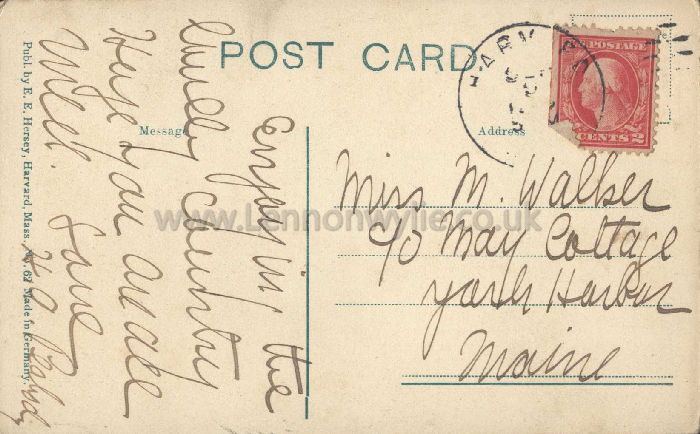 POST CARD
Message
Address
POSTAGE
CENTS 2
HARV
Enjoying the
lovely country
Hope you are all
well. Love
Miss M. Walker
c/o May Cottage
York Harbor
Maine
Publ. by E. E. Hersey, Harvard, Mass. No. 67 Made in Germany.
www.Lennonwylie.co.uk